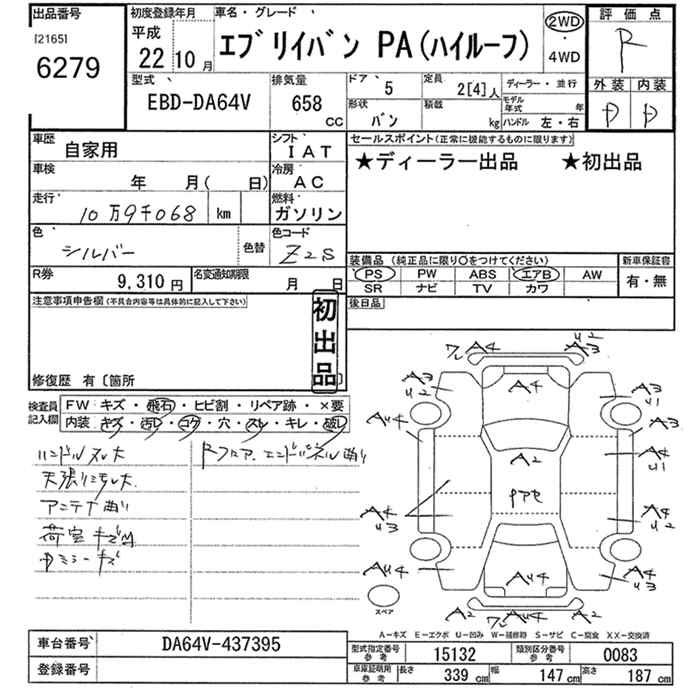 出品番号 [2165] 6279
初度登録年月 平成 22年 10月
車名・グレード エブリイバン PA(ハイルーフ)
2WD・4WD
評価点 R
型式 EBD-DA64V
排気量 658 CC
ドア 5
形状 バン
定員 2[4]人
積載 kg
ディーラー・並行
モデル年式 年
ハンドル 左・右
外装 内装
D D
車歴 自家用
シフト IAT
セールスポイント(正常に機能するものに限ります)
★ディーラー出品 ★初出品
車検 年 月( 日)
冷房 AC
走行 10万9千068 km
燃料 ガソリン
色 シルバー
色替
色コード Z2S
装備品(純正品に限り○をつけてください)
新車保証書
PS PW ABS エアB AW
SR ナビ TV カワ
有・無
R券 9,310円
名変通知期限 月 日
後日品
注意事項申告欄(不具合内容等は具体的に記入して下さい)
初出品
修復歴 有〔箇所 〕
検査員記入欄
FW キズ・飛石・ヒビ割・リペア跡・×要
内装 キズ・汚レ・コゲ・穴・スレ・キレ・破レ
ハンドルスレ大
天張りヨゴレ大
アンテナ曲り
荷室キズM
Dミラーキズ
Rフロア、エンドパネル曲り
ワレ A4 U2 A3
A4
A3 U2
A3 U1
AU4
A4 U1
A2
PアセA
A4 U3
A4 U2
AU4
AU4
A4 U3
A2 ワレ AU4 A2
スペア
A-キズ E-エクボ U-凹み W-補修跡 S-サビ C-腐食 XX-交換済
車台番号 DA64V-437395
登録番号
型式指定番号 参考 15132
類別区分番号 参考 0083
車庫証明用 参考
長さ 339 cm
幅 147 cm
高さ 187 cm